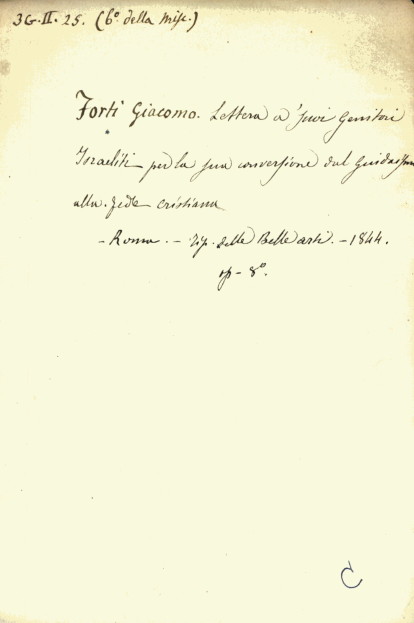 3G.II.25. (6º della Misc.)
Forti Giacomo. Lettera a' suoi Genitori
Israeliti per la sua conversione dal Giudaismo
alla fede cristiana
- Roma. - Tip. delle Belle arti. - 1844.
op - 8º.
C